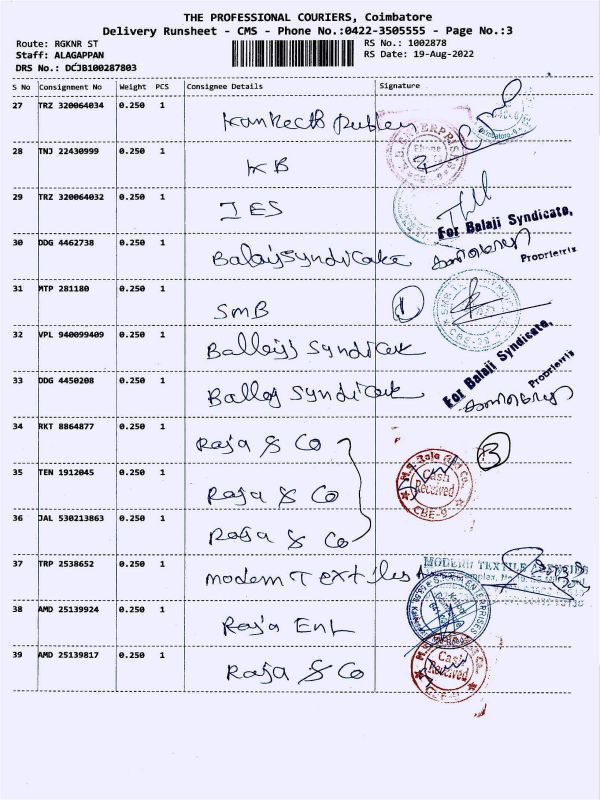 THE PROFESSIONAL COURIERS, Coimbatore
Delivery Runsheet - CMS - Phone No.:0422-3505555 - Page No.:3
Route: RGKNR ST
RS No.: 1002878
Staff: ALAGAPPAN
RS Date: 19-Aug-2022
DRS No.: DCJB100287803
S No Consignment No Weight PCS Consignee Details Signature
27 TRZ 320064034 0.250 1
28 TNJ 22430999 0.250 1 KB
29 TRZ 320064032 0.250 1 JES
For Balaji Syndicate,
30 DDG 4462738 0.250 1 Balaji Syndicate
Proprietrix
31 MTP 281180 0.250 1 SMB 1
32 VPL 940099409 0.250 1 Balleiji Syndicate
For Balaji Syndicate,
Proprietrix
33 DDG 4450208 0.250 1 Balloj Syndicate
34 RKT 8864877 0.250 1 Raja & Co 3
35 TEN 1912045 0.250 1 Raja & Co
M.S. Raja And Co. Cash Received CBE-9
36 JAL 530213863 0.250 1 Raja & Co
37 TRP 2538652 0.250 1 Modern Textiles
MODERN TEXTILE
38 AMD 25139924 0.250 1 Raja Ent
39 AMD 25139817 0.250 1 Raja & Co
Cash Received